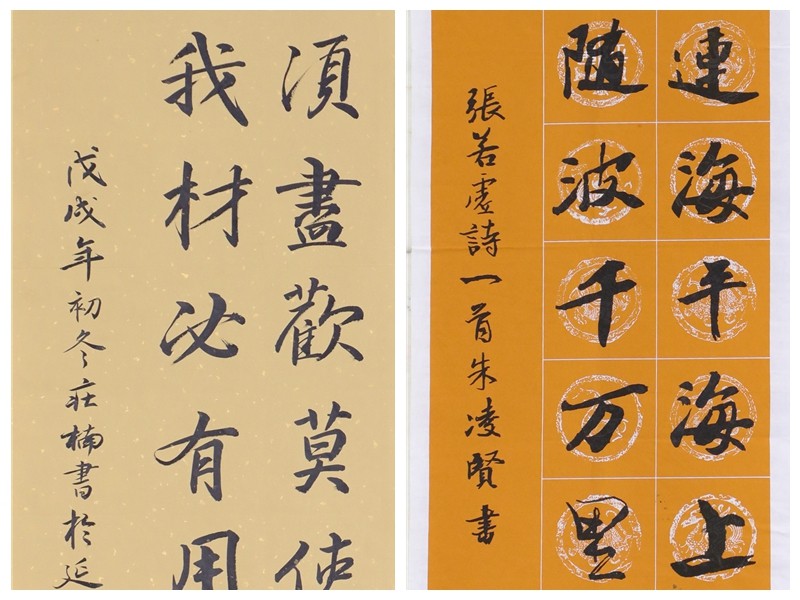 須盡歡莫使
我材必有用
戊戌年初冬莊楠書於延
連海平海上
隨波千万里
張若虛詩一首朱凌賢書